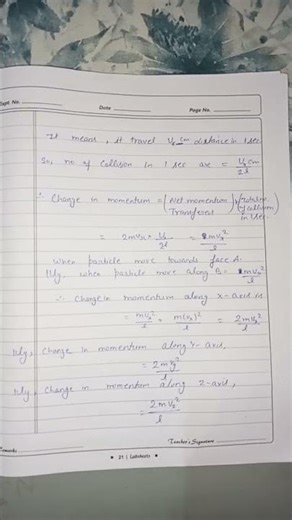 Expt. No.
Date
Page No.
It meant, it travel Vx cm distance in 1 sec
So, no of Collision in 1 sec are = Vx cm / 2l
∴ Change in momentum = (Net momentum Transferred) x (Total no. of Collision in 1 sec.)
= 2mVx × Vx / 2l = mVx² / l
when particle move towards face A.
lly, when particle move along B = mVx² / l
∵ Change in momentum along x-axis is
= mVx² / l + m(Vx)² / l = 2mVx² / l
lly, Change in momentum along Y-axis,
= 2mVy² / l
lly, Change in momentum along Z-axis,
= 2mVz² / l
Teacher's Signature
• 21 |